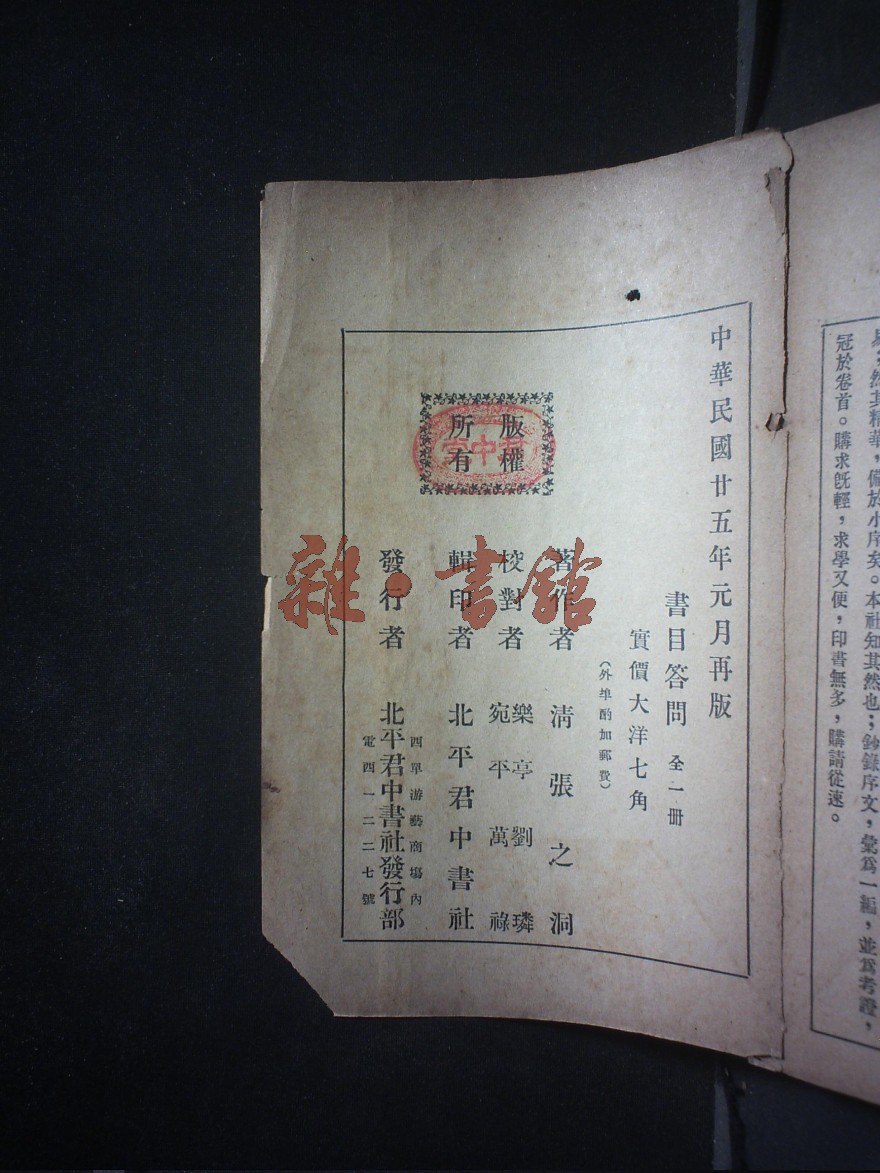 易，然其精華，備於小序矣。本社知其然也；鈔錄序文，彙爲一編，並爲考證，
冠於卷首。購求旣輕，求學又便，印書無多，購請從速。
中華民國廿五年元月再版
書目答問 全一册
實價大洋七角
（外埠酌加郵費）
著作者 清張之洞
校對者 樂亭劉璘
宛平萬祿
輯印者 北平君中書社
發行者 北平君中書社發行部
西單游藝商塲內
電西一二二七號
版權
所有
雜·書舘